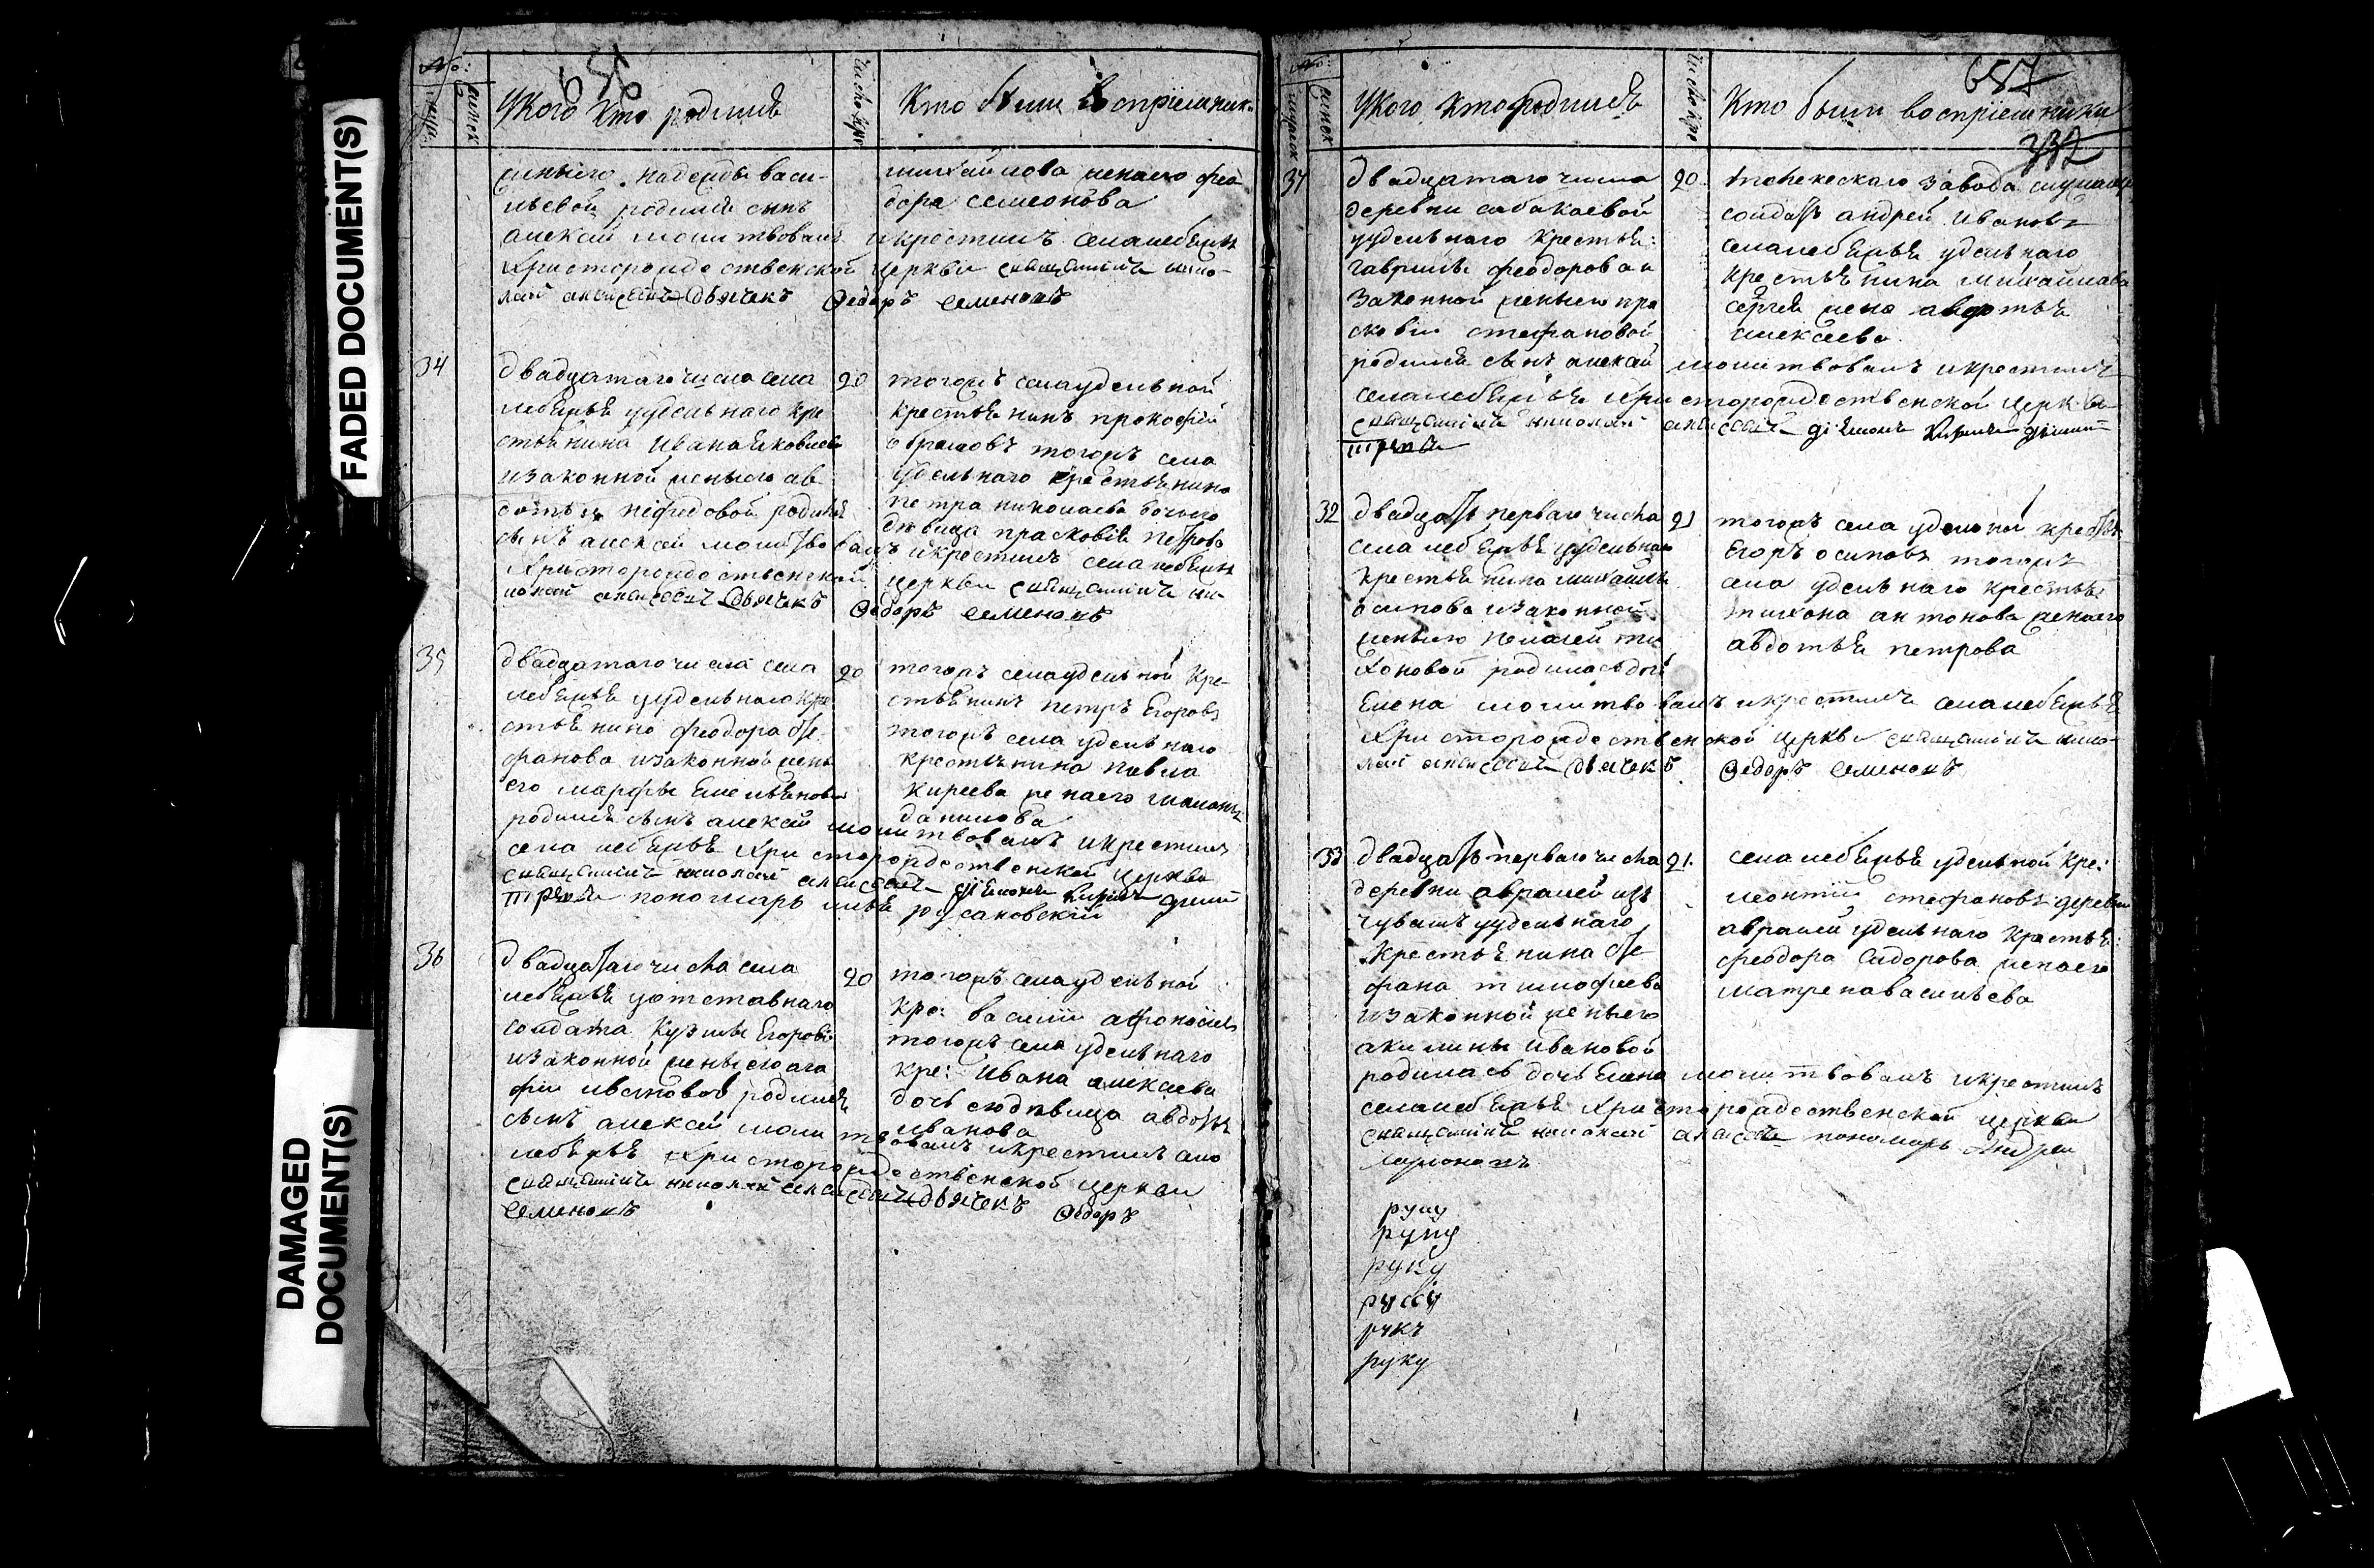 FADED DOCUMENT(S)
DAMAGED
DOCUMENT(S)
656
У кого кто родился
Число кре
Кто были восприемник
женыего надежды васи-
льевой родился сынъ
алексѣй молитвовалъ и крестилъ села лебяжья
Христорождественской церкви священникъ нико-
лай дьячекъ Федоръ Семеновъ
михайлова женаего фео
дора семенова
34
двадцатаго числа села
лебяжья удельнаго кре
стьянина Ивана яковлева
изаконной женыего ав
дотьи нефидовой родился
сынъ алексѣй молитвовалъ и крестилъ села лебяжья
Христорождественской церкви священникъ ни
колай дьячекъ Федоръ Семеновъ
20
тогожъ села удельной
крестьянинъ прокофѣй
абрамовъ тогожъ села
удельнаго крестьянина
петра николаева дочьего
девица прасковья петрова
35
двадцатаго числа села
лебяжья у удельнаго кре
стьянина феодора сте
фанова изаконной жены
его марфы Емельяновой
родился сынъ алексѣй молитвовалъ и крестилъ
села лебяжья Христорождественской церкви
священникъ николай диаконъ
пономарь илья русановский
20
тогожъ села удельной кре-
стьянинъ петръ Егоровъ
тогожъ села удельнаго
крестьянина павла
киреева женаего
данилова
36
двадцатаго числа села
лебяжья у отставнаго
солдата Кузмы Егорова
изаконной женыего ага
фии ивановой родился
сынъ алексѣй молитвовалъ и крестилъ села
лебяжья Христорождественской церкви
священникъ николай дьячекъ Федоръ
Семеновъ
20
тогожъ села удельной
кре: василий афонасьев
тогожъ села удельнаго
кре: Ивана алексеева
дочь егодевица авдотья
иванова
657
332
У кого кто родился
Число кре
Кто были восприемники
37
двадцатаго числа
деревни сабакаевой
у удельнаго крестья:
гаврилы феодорова и
законной женыего пра
сковьи стефановой
родился сынъ алексѣй молитвовалъ и крестилъ
села лебяжья Христорождественской церкви
священникъ николай диаконъ
20
завода
солдатъ андрей Ивановъ
села лебяжья удельнаго
крестьянина михайлова
сергѣя жена авдотья
алексеева
32
двадцать перваго числа
села лебяжья у удельнаго
крестьянина михаила
осипова изаконной
женыего пелагеи ти
хоновой родилась дочь
Елена молитвовалъ и крестилъ села лебяжья
Христорождественской церкви священникъ нико-
лай дьячекъ Федоръ Семеновъ
21
тогожъ села удельной кресть
Егоръ осиповъ тогожъ
села удельнаго крестья
тихона антонова женаего
авдотья петрова
33
двадцать перваго числа
деревни авралей изъ
чувашъ у удельнаго
крестьянина сте
фана тимофеева
изаконной женыего
акилины Ивановой
родилась дочь Елена молитвовалъ и крестилъ
села лебяжья Христорождественской церкви
священникъ николай пономарь Андрей
ларионовъ
21.
села лебяжья удельной кре:
леонтий стефановъ деревни
авралей удельнаго крестья:
феодора Сидорова женаего
матрена васильева
руку
руку
руку
руку
рукъ
руку